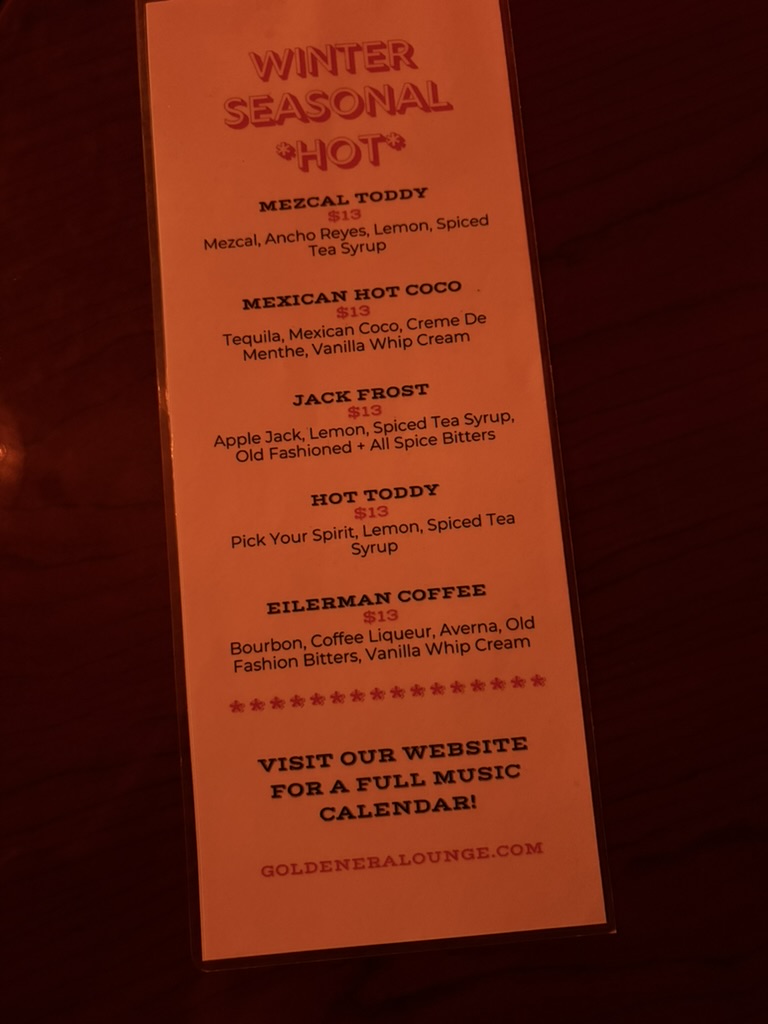 WINTER
SEASONAL
*HOT*
MEZCAL TODDY
$13
Mezcal, Ancho Reyes, Lemon, Spiced
Tea Syrup
MEXICAN HOT COCO
$13
Tequila, Mexican Coco, Creme De
Menthe, Vanilla Whip Cream
JACK FROST
$13
Apple Jack, Lemon, Spiced Tea Syrup,
Old Fashioned + All Spice Bitters
HOT TODDY
$13
Pick Your Spirit, Lemon, Spiced Tea
Syrup
EILERMAN COFFEE
$13
Bourbon, Coffee Liqueur, Averna, Old
Fashion Bitters, Vanilla Whip Cream
****************
VISIT OUR WEBSITE
FOR A FULL MUSIC
CALENDAR!
GOLDENERALOUNGE.COM